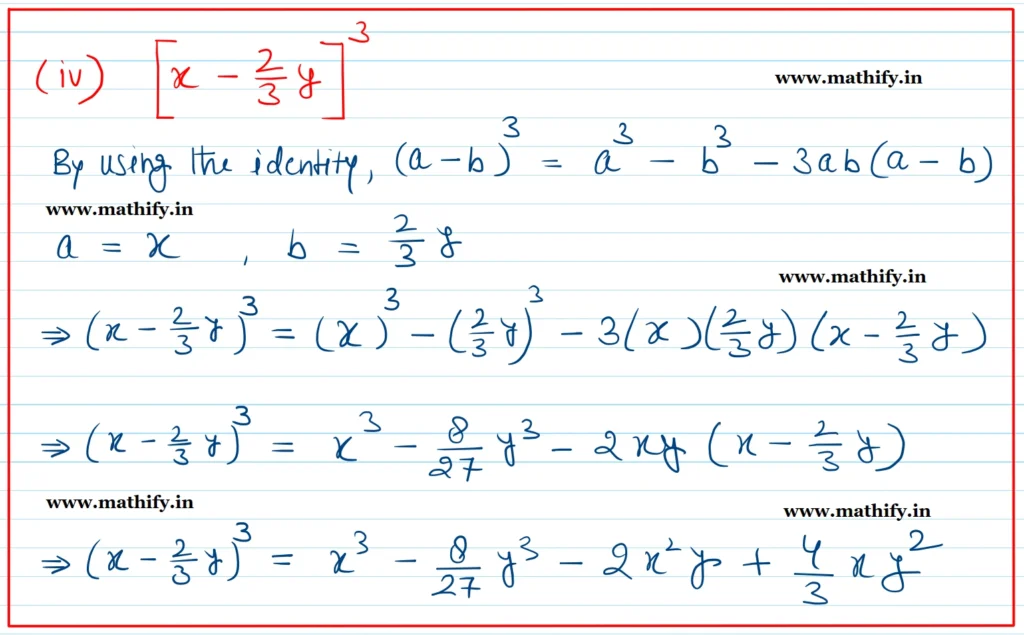 (iv) [x - 2/3 y]^3
www.mathify.in
By using the identity, (a - b)^3 = a^3 - b^3 - 3ab(a - b)
www.mathify.in
a = x , b = 2/3 y
www.mathify.in
⇒ (x - 2/3 y)^3 = (x)^3 - (2/3 y)^3 - 3(x)(2/3 y)(x - 2/3 y)
⇒ (x - 2/3 y)^3 = x^3 - 8/27 y^3 - 2xy (x - 2/3 y)
www.mathify.in
www.mathify.in
⇒ (x - 2/3 y)^3 = x^3 - 8/27 y^3 - 2x^2y + 4/3 xy^2